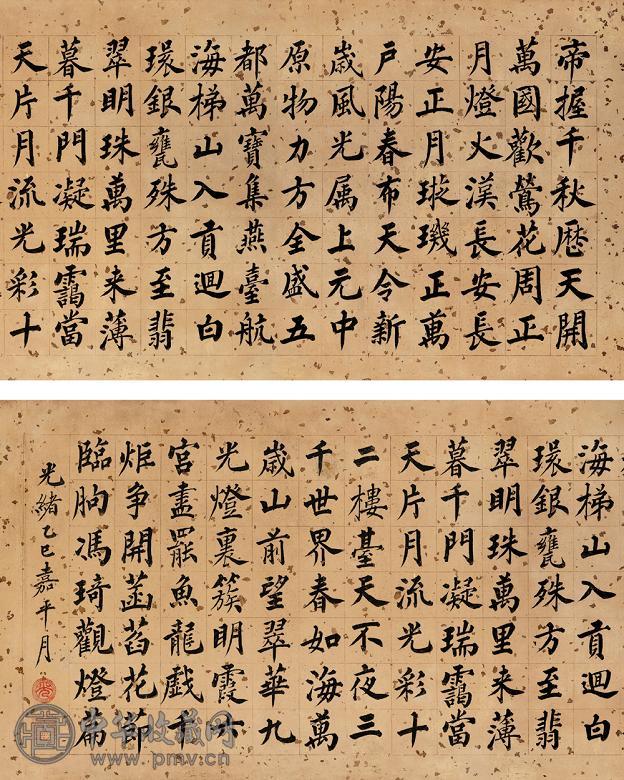 帝握千秋暦天開
萬國歡鶯花周正
月燈火漢長安長
安正月璇璣正萬
戶陽春布天令新
歲風光属上元中
原物力方全盛五
都萬寶集燕臺航
海梯山入貢廻白
環銀甕殊方至翡
翠明珠萬里来薄
暮千門凝瑞靄當
天片月流光彩十
海梯山入貢廻白
環銀甕殊方至翡
翠明珠萬里来薄
暮千門凝瑞靄當
天片月流光彩十
二樓臺天不夜三
千世界春如海萬
歲山前望翠華九
光燈裏簇明霞六
宮盡罷魚龍戲千
炬争開菡萏花節
臨朐馮琦觀燈篇
光緒乙巳嘉平月
中华收藏网
www.pmv.cn